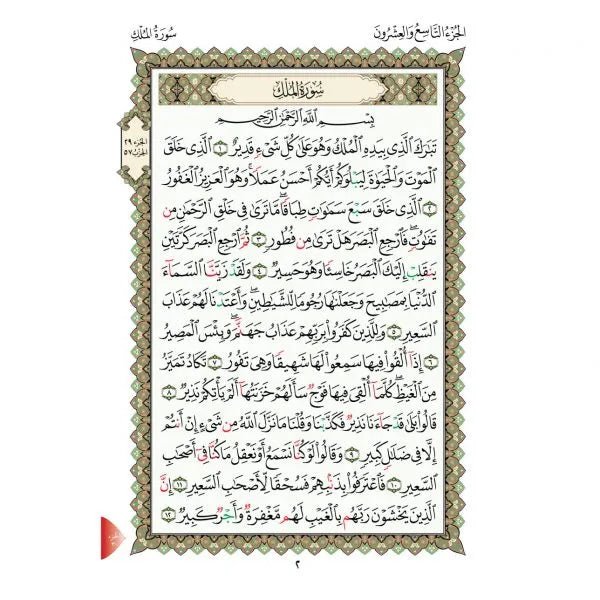 الجزء التاسع والعشرون
سورة الملك
سُورَةُ المُلْكِ
بِسْمِ اللَّهِ الرَّحْمَٰنِ الرَّحِيمِ
الجزء ٢٩
الحزب ٥٧
تَبَارَكَ الَّذِي بِيَدِهِ الْمُلْكُ وَهُوَ عَلَىٰ كُلِّ شَيْءٍ قَدِيرٌ ١ الَّذِي خَلَقَ
الْمَوْتَ وَالْحَيَاةَ لِيَبْلُوَكُمْ أَيُّكُمْ أَحْسَنُ عَمَلًا ۚ وَهُوَ الْعَزِيزُ الْغَفُورُ
٢ الَّذِي خَلَقَ سَبْعَ سَمَاوَاتٍ طِبَاقًا ۖ مَّا تَرَىٰ فِي خَلْقِ الرَّحْمَٰنِ مِن
تَفَاوُتٍ ۖ فَارْجِعِ الْبَصَرَ هَلْ تَرَىٰ مِن فُطُورٍ ٣ ثُمَّ ارْجِعِ الْبَصَرَ كَرَّتَيْنِ
يَنقَلِبْ إِلَيْكَ الْبَصَرُ خَاسِئًا وَهُوَ حَسِيرٌ ٤ وَلَقَدْ زَيَّنَّا السَّمَاءَ
الدُّنْيَا بِمَصَابِيحَ وَجَعَلْنَاهَا رُجُومًا لِّلشَّيَاطِينِ ۖ وَأَعْتَدْنَا لَهُمْ عَذَابَ
السَّعِيرِ ٥ وَلِلَّذِينَ كَفَرُوا بِرَبِّهِمْ عَذَابُ جَهَنَّمَ ۖ وَبِئْسَ الْمَصِيرُ
٦ إِذَا أُلْقُوا فِيهَا سَمِعُوا لَهَا شَهِيقًا وَهِيَ تَفُورُ ٧ تَكَادُ تَمَيَّزُ
مِنَ الْغَيْظِ ۖ كُلَّمَا أُلْقِيَ فِيهَا فَوْجٌ سَأَلَهُمْ خَزَنَتُهَا أَلَمْ يَأْتِكُمْ نَذِيرٌ ٨
قَالُوا بَلَىٰ قَدْ جَاءَنَا نَذِيرٌ فَكَذَّبْنَا وَقُلْنَا مَا نَزَّلَ اللَّهُ مِن شَيْءٍ إِنْ أَنتُمْ
إِلَّا فِي ضَلَالٍ كَبِيرٍ ٩ وَقَالُوا لَوْ كُنَّا نَسْمَعُ أَوْ نَعْقِلُ مَا كُنَّا فِي أَصْحَابِ
السَّعِيرِ ١٠ فَاعْتَرَفُوا بِذَنبِهِمْ فَسُحْقًا لِّأَصْحَابِ السَّعِيرِ ١١ إِنَّ
الَّذِينَ يَخْشَوْنَ رَبَّهُم بِالْغَيْبِ لَهُم مَّغْفِرَةٌ وَأَجْرٌ كَبِيرٌ ١٢
٢